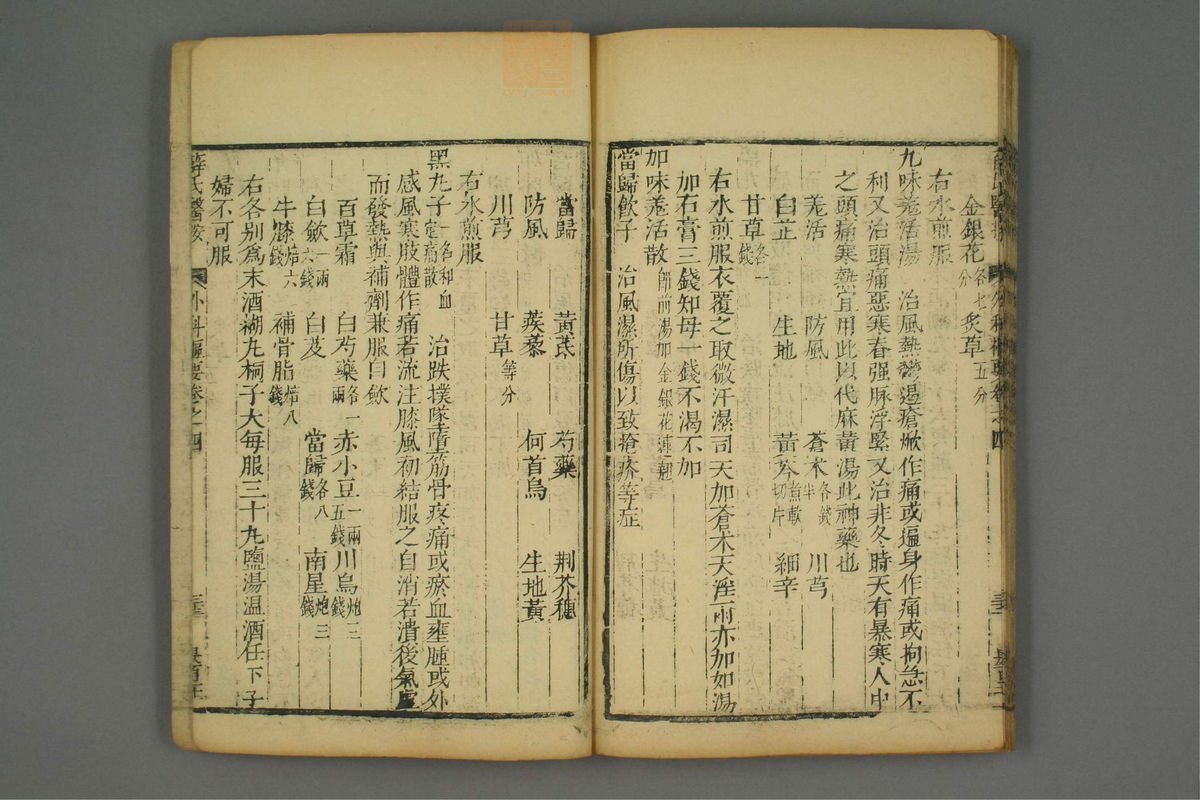 金銀花各七分 炙草五分
右水煎服
九味羗活湯 治風熱鬱遏瘡㾮作痛或遍身作痛或拘急不
利又治頭痛惡寒春强脉浮緊又治非冬時天有暴寒人中
之頭痛寒熱宜用此以代麻黄湯此神藥也
羗活 防風 蒼木各錢半 川芎
白芷 生地 黄芩煮軟切片 細辛
甘草各一錢
右水煎服衣覆之取微汗濕司天加蒼木天淫雨亦加如湯
加石膏三錢知母一錢不渴不加
加味羗活散 即前湯加金銀花連翹
當歸飲子 治風濕所傷以致瘡疥等症
當歸 黄茋 芍藥 荆芥穗
防風 蒺藜 何首烏 生地黄
川芎 甘草等分
右水煎服
黑丸子一名和血定痛散 治跌撲墜墮筋骨疼痛或瘀血壅腫或外
感風寒肢體作痛若流注膝風初結服之自消若潰後氣虛
而發熱與補劑兼服白歛
百草霜 白芍藥各一兩 赤小豆一兩五錢 川烏炮三錢
白歛一兩六錢 白芨 當歸各八錢 南星炮三錢
牛膝焙六錢 補骨脂焙八錢
右各别爲末酒糊丸桐子大每服三十丸鹽湯温酒任下子
婦不可服
薛氏醫案 外科樞要卷之四